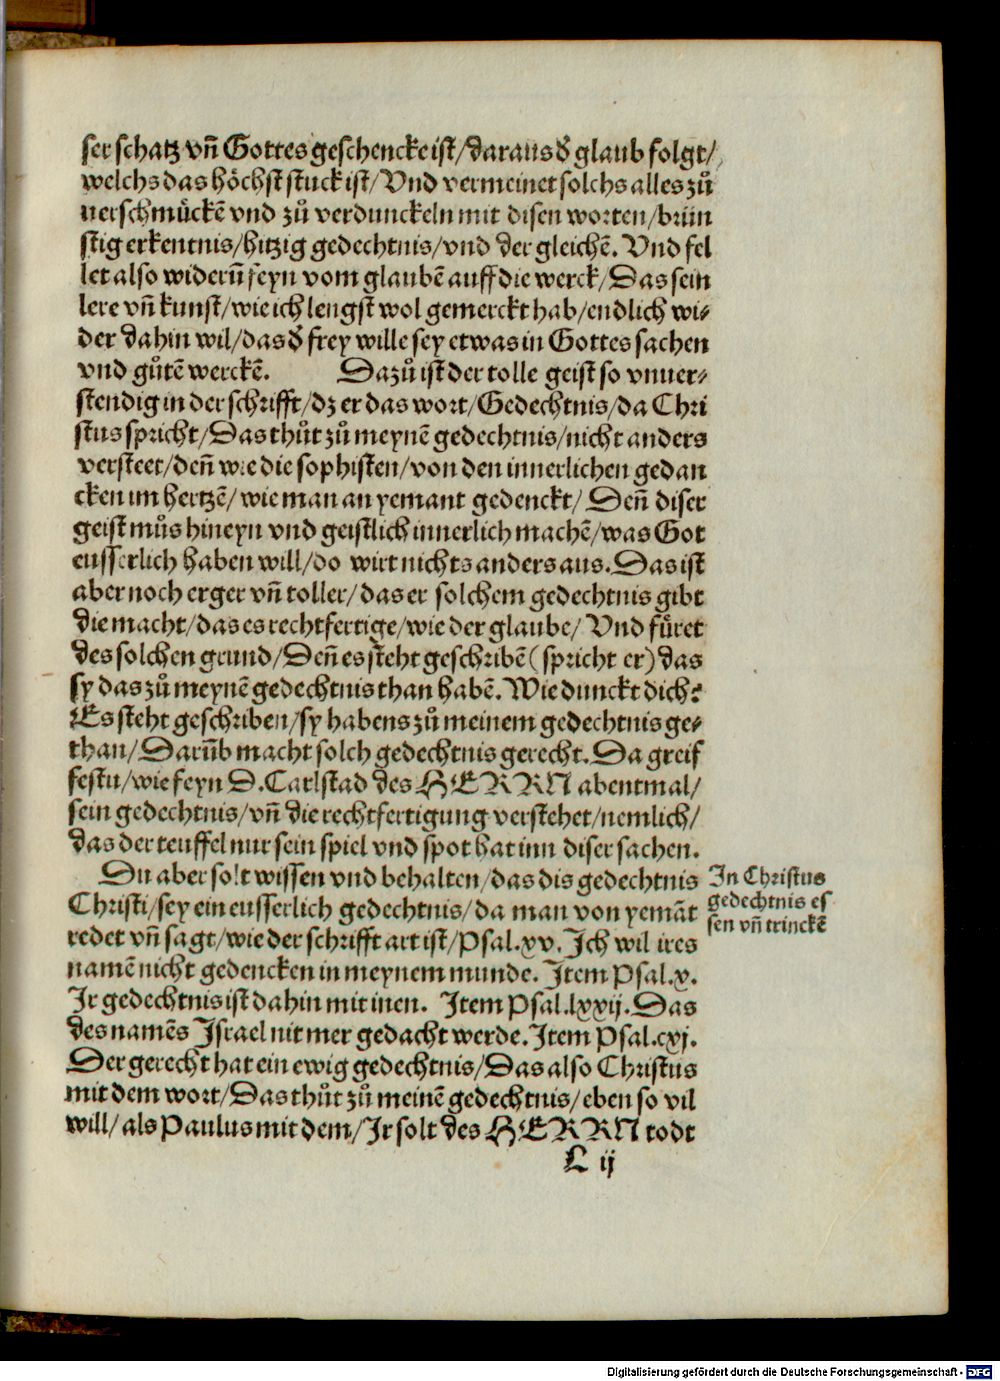 ser schatz vn̄ Gottes geschencke ist/daraus d̓ glaub folgt/
welchs das höchst stuck ist/Vnd vermeinet solchs alles zů
uerschmückē vnd zů verdunckeln mit disen worten/brün
stig erkentnis/hitzig gedechtnis/vnd der gleichē. Vnd fel
let also widerū feyn vom glaubē auff die werck/Das sein
lere vn̄ kunst/wie ich lengst wol gemerckt hab/endlich wi⸗
der dahin wil/das d̓ frey wille sey etwas in Gottes sachen
vnd gůtē werckē. Dazů ist der tolle geist so vnuer⸗
stendig in der schrifft/dz er das wort/Gedechtnis/da Chri
stus spricht/Das thůt zů meynē gedechtnis/nicht anders
versteet/den̄ wie die sophisten/von den innerlichen gedan
cken im hertzē/wie man an yemant gedenckt/ Den̄ diser
geist můs hineyn vnd geistlich innerlich machē/was Got
eusserlich haben will/do wirt nichts anders aus. Das ist
aber noch erger vn̄ toller/das er solchem gedechtnis gibt
die macht/das es rechtfertige/wie der glaube/ Vnd füret
des solchen grund/Den̄ es steht geschribē (spricht er) das
sy das zů meynē gedechtnis than habē. Wie dunckt dich?
Es steht geschriben/sy habens zů meinem gedechtnis ge⸗
than/Darūb macht solch gedechtnis gerecht. Da greif
festu/wie feyn D. Carlstad des HERRN abentmal/
sein gedechtnis/vn̄ die rechtfertigung verstehet/nemlich/
das der teuffel nur sein spiel vnd spot hat inn diser sachen.
Du aber solt wissen vnd behalten/das dis gedechtnis
Christi/sey ein eusserlich gedechtnis/da man von yemāt
redet vn̄ sagt/wie der schrifft art ist/Psal.xv. Ich wil ires
namē nicht gedencken in meynem munde. Item Psal.x.
Ir gedechtnis ist dahin mit inen. Item Psal.lxxij. Das
des namēs Israel nit mer gedacht werde. Item Psal.cxj.
Der gerecht hat ein ewig gedechtnis/Das also Christus
mit dem wort/Das thůt zů meinē gedechtnis/eben so vil
will/als Paulus mit dem/Ir solt des HERRN todt
L ij
In Christus
gedechtnis es
sen vn̄ trinckē
Digitalisierung gefördert durch die Deutsche Forschungsgemeinschaft - DFG